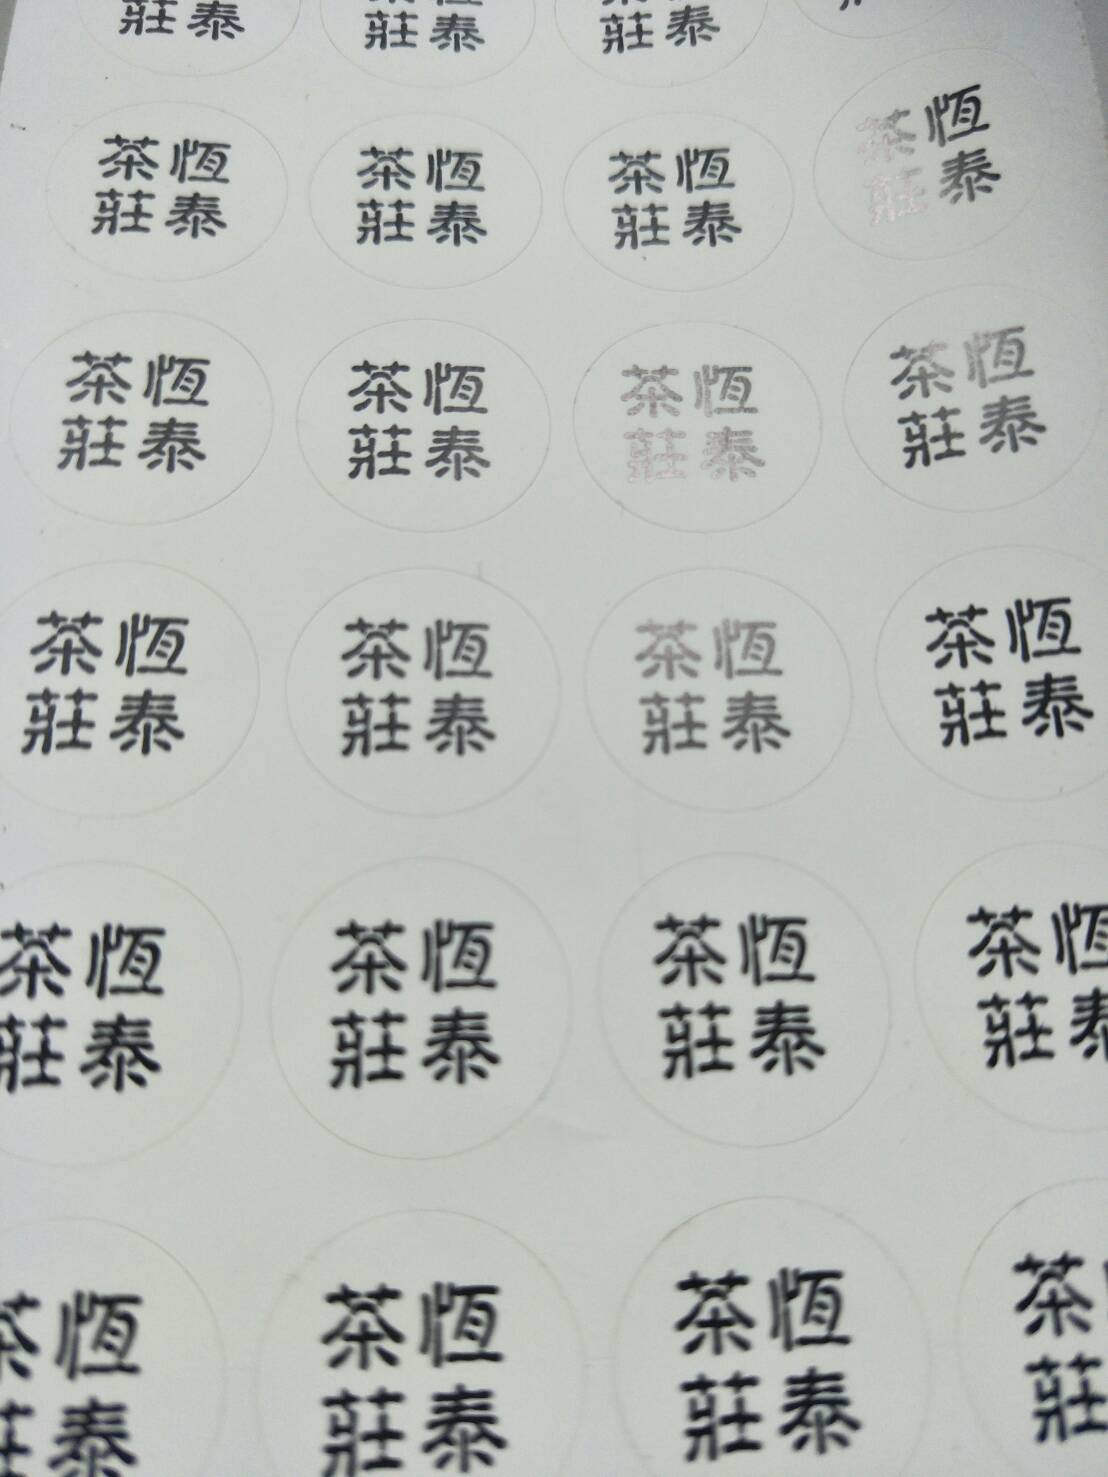 泰
莊
泰
莊
泰
莊
恆泰
茶莊
恆泰
茶莊
恆泰
茶莊
恆泰
茶莊
恆泰
茶莊
恆泰
茶莊
恆泰
茶莊
恆泰
茶莊
恆泰
茶莊
恆泰
茶莊
恆泰
茶莊
恆泰
茶莊
恆泰
茶莊
恆泰
茶莊
恆泰
茶莊
恆泰
茶莊
恆泰
茶莊
恆泰
茶莊
恆泰
茶莊
茶莊